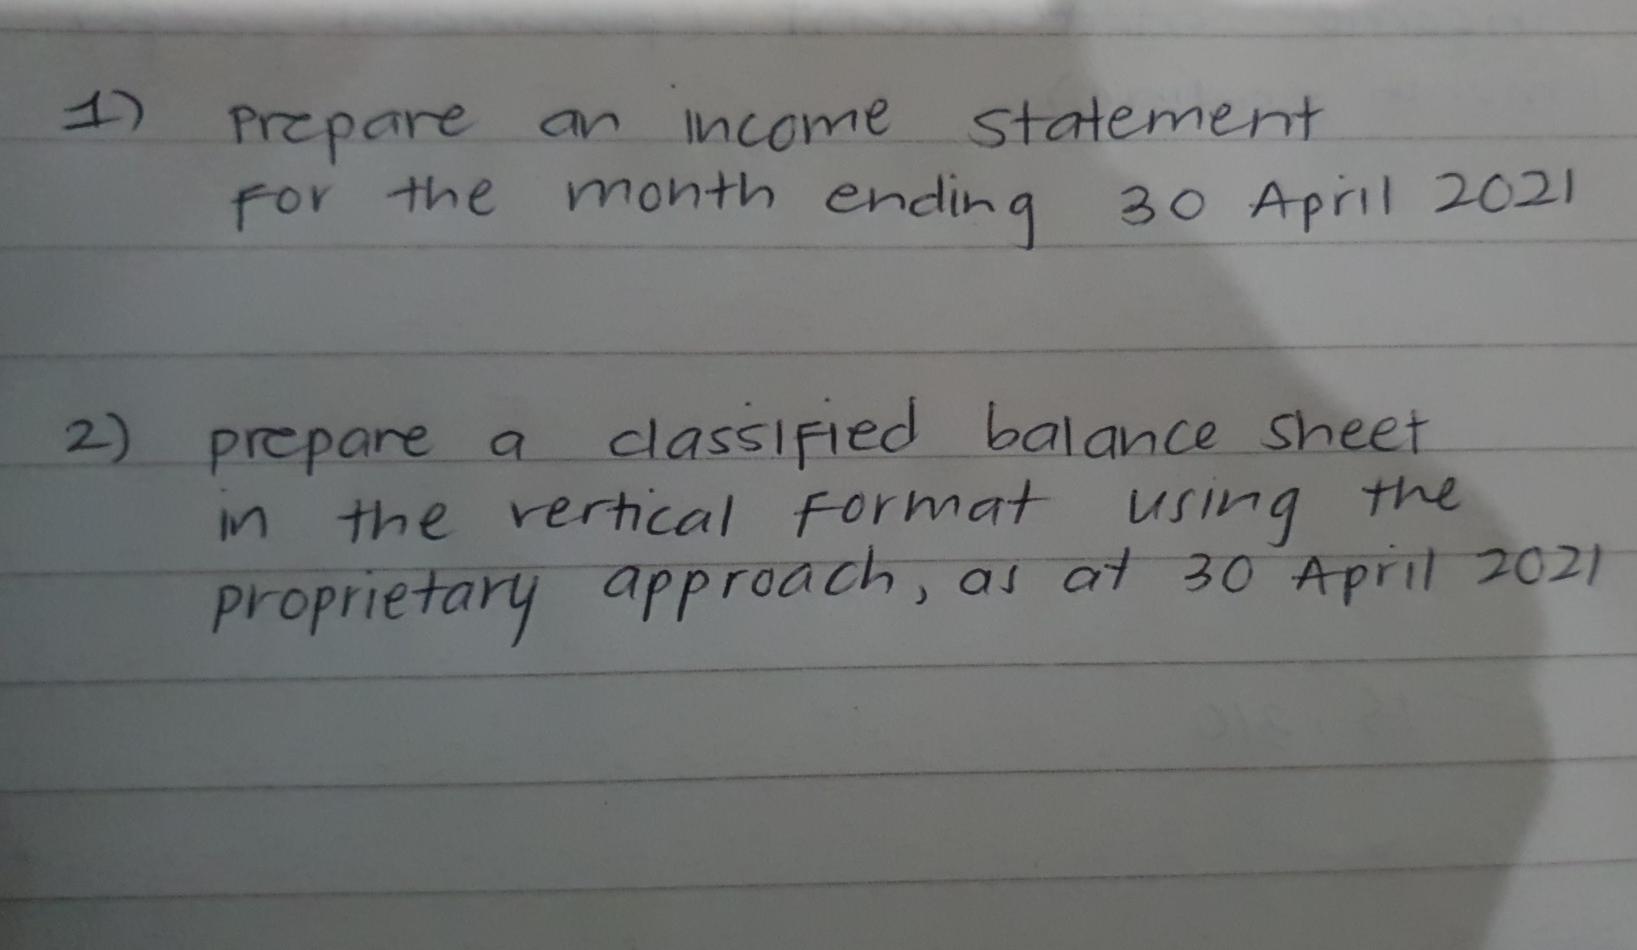 1) Prepare an income statement
For the month ending 30 April 2021
2) prepare a classified balance sheet
in the vertical format using the
proprietary approach, as at 30 April 2021